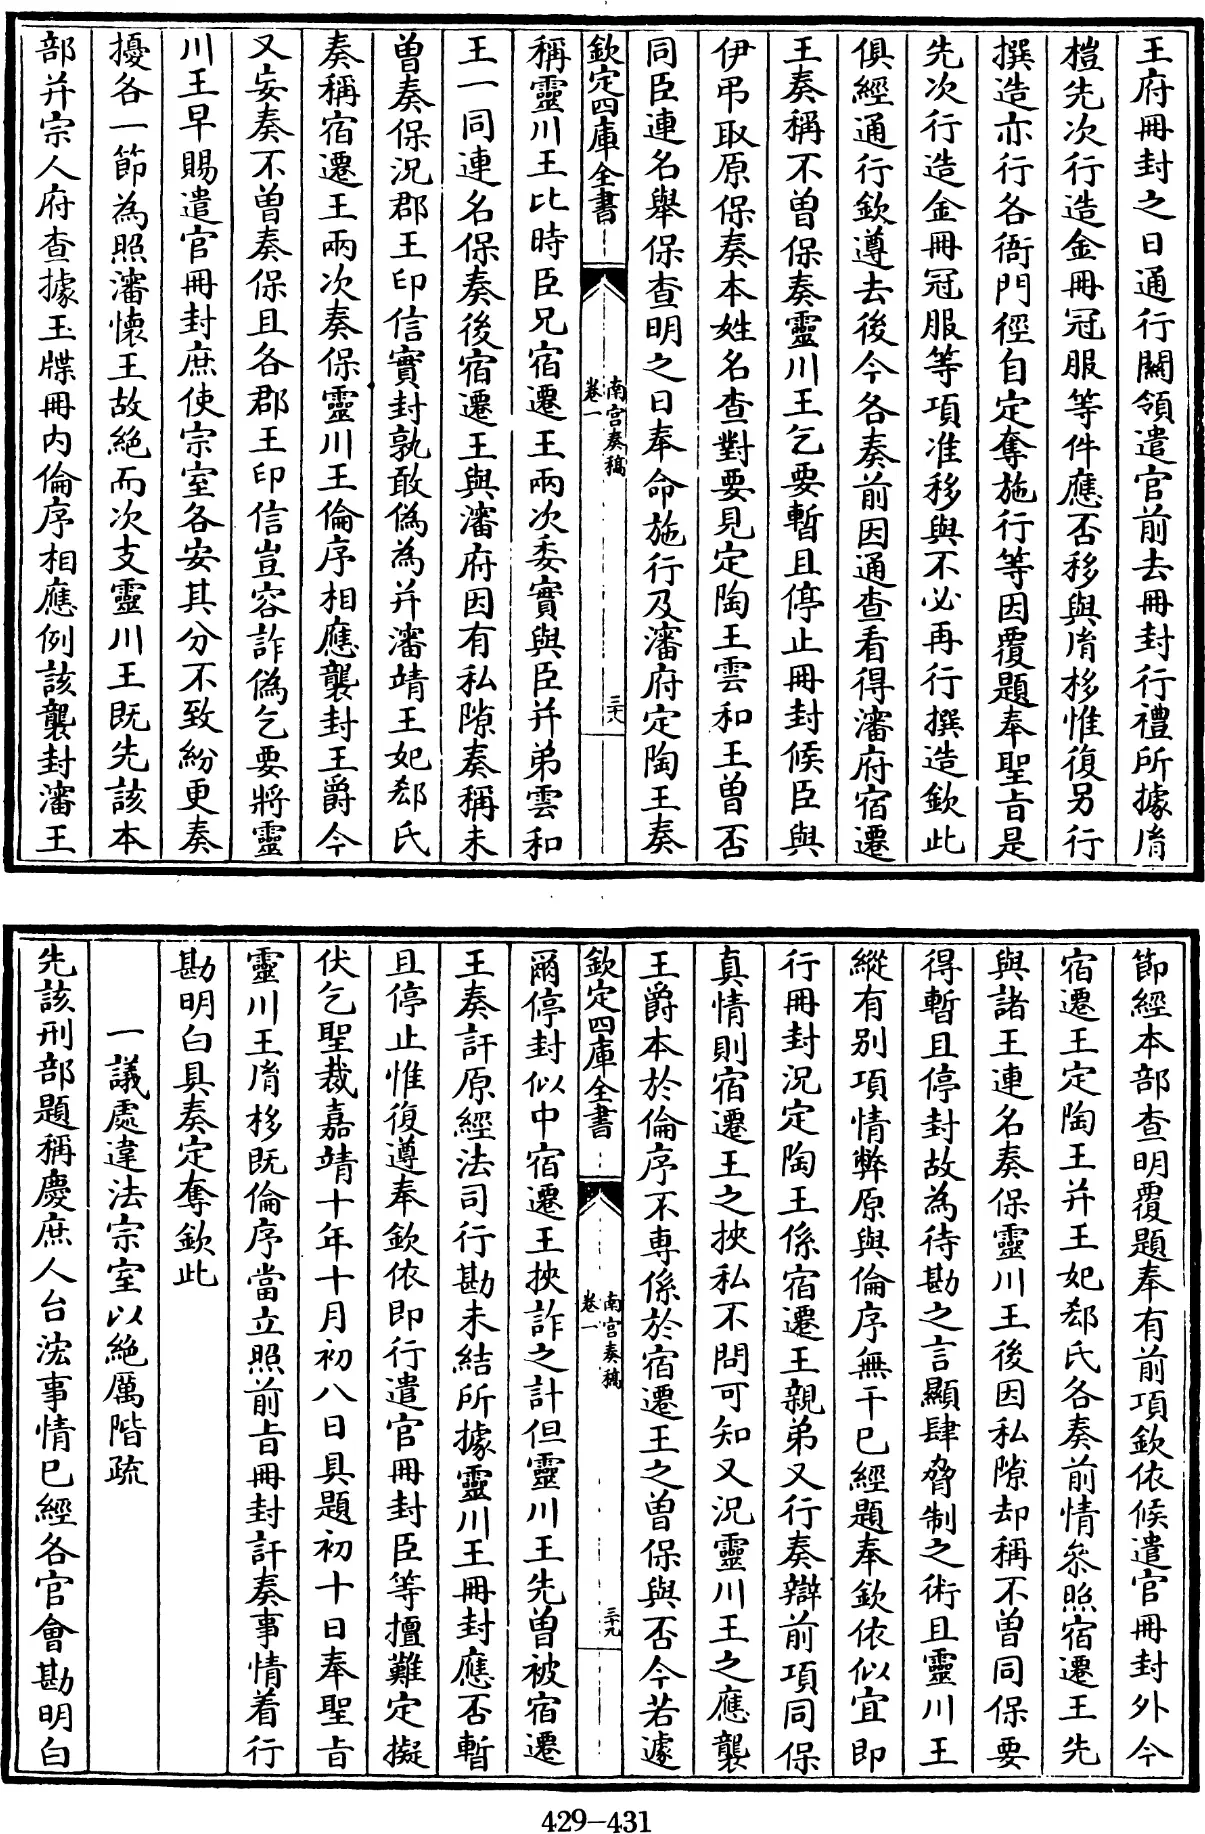 王府冊封之日通行關領遣官前去冊封行禮所據胤
榿先次行造金冊冠服等件應否移與胤移惟復另行
撰造亦行各衙門徑自定奪施行等因覆題奉聖旨是
先次行造金冊冠服等項准移與不必再行撰造欽此
俱經通行欽遵去後今各奏前因通查看得瀋府宿遷
王奏稱不曾保奏靈川王乞要暫且停止冊封候臣與
伊弔取原保奏本姓名查對要見定陶王雲和王曾否
同臣連名舉保查明之日奉命施行及瀋府定陶王奏
欽定四庫全書
南宮奏稿
卷一
三十八
稱靈川王比時臣兄宿遷王兩次委實與臣并弟雲和
王一同連名保奏後宿遷王與瀋府因有私隙奏稱未
曽奏保况郡王印信實封孰敢偽為并瀋靖王妃郄氏
奏稱宿遷王兩次奏保靈川王倫序相應襲封王爵今
又妄奏不曽奏保且各郡王印信豈容詐偽乞要將靈
川王早賜遣官冊封庶使宗室各安其分不致紛更奏
擾各一節為照瀋懷王故絶而次支靈川王既先該本
部并宗人府查據玉牒冊内倫序相應例該襲封瀋王
節經本部查明覆題奉有前項欽依候遣官冊封外今
宿遷王定陶王并王妃郄氏各奏前情叅照宿遷王先
與諸王連名奏保靈川王後因私隙却稱不曽同保要
得暫且停封故為待勘之言顯肆脅制之術且靈川王
縱有别項情弊原與倫序無干已經題奉欽依似宜即
行冊封况定陶王係宿遷王親弟又行奏辯前項同保
真情則宿遷王之挾私不問可知又况靈川王之應襲
王爵本於倫序不専係於宿遷王之曽保與否今若遽
欽定四庫全書
南宮奏稿
卷一
三十九
爾停封似中宿遷王挾詐之計但靈川王先曽被宿遷
王奏訐原經法司行勘未結所據靈川王冊封應否暫
且停止惟復遵奉欽依即行遣官冊封臣等擅難定擬
伏乞聖裁嘉靖十年十月初八日具題初十日奉聖旨
靈川王胤移既倫序當立照前旨冊封訐奏事情着行
勘明白具奏定奪欽此
一議處違法宗室以絶厲階疏
先該刑部題稱慶庶人台浤事情已經各官會勘明白
429-431